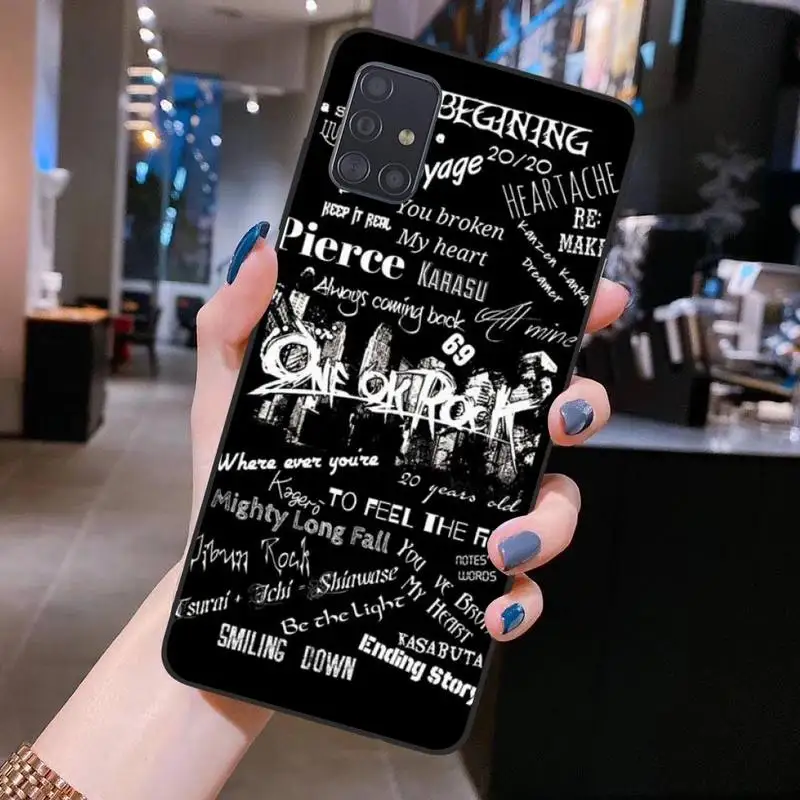 BEGINING
20/20
yage
HEARTACHE
KEEP IT REAL
You broken
My heart
RE:
MAKE
Kanzen Kankak
Dreamer
Pierce
KARASU
Always coming back
At mine
69
ONE OK ROCK
Where ever you're
20 years old
Kagero
TO FEEL THE F
Mighty Long Fall
NOTES'
WORDS
Jibun Rock
You 've Bro
My Heart
Tsurai + Ichi = Shiawase
Be the Light
KASABUTA
SMILING DOWN
Ending Story